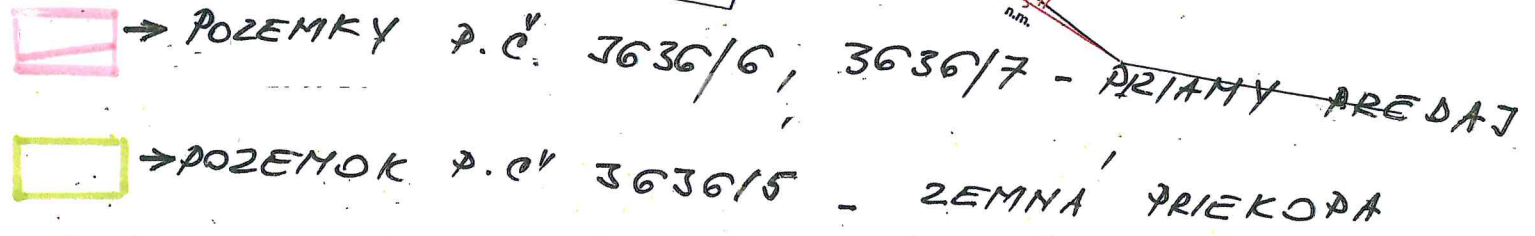 n.m.
→ POZEMKY P.Č. 3636/6, 3636/7 - PRIAMY PREDAJ
→ POZEMOK P.Č 3636/5 - ZEMNÁ PRIEKOPA